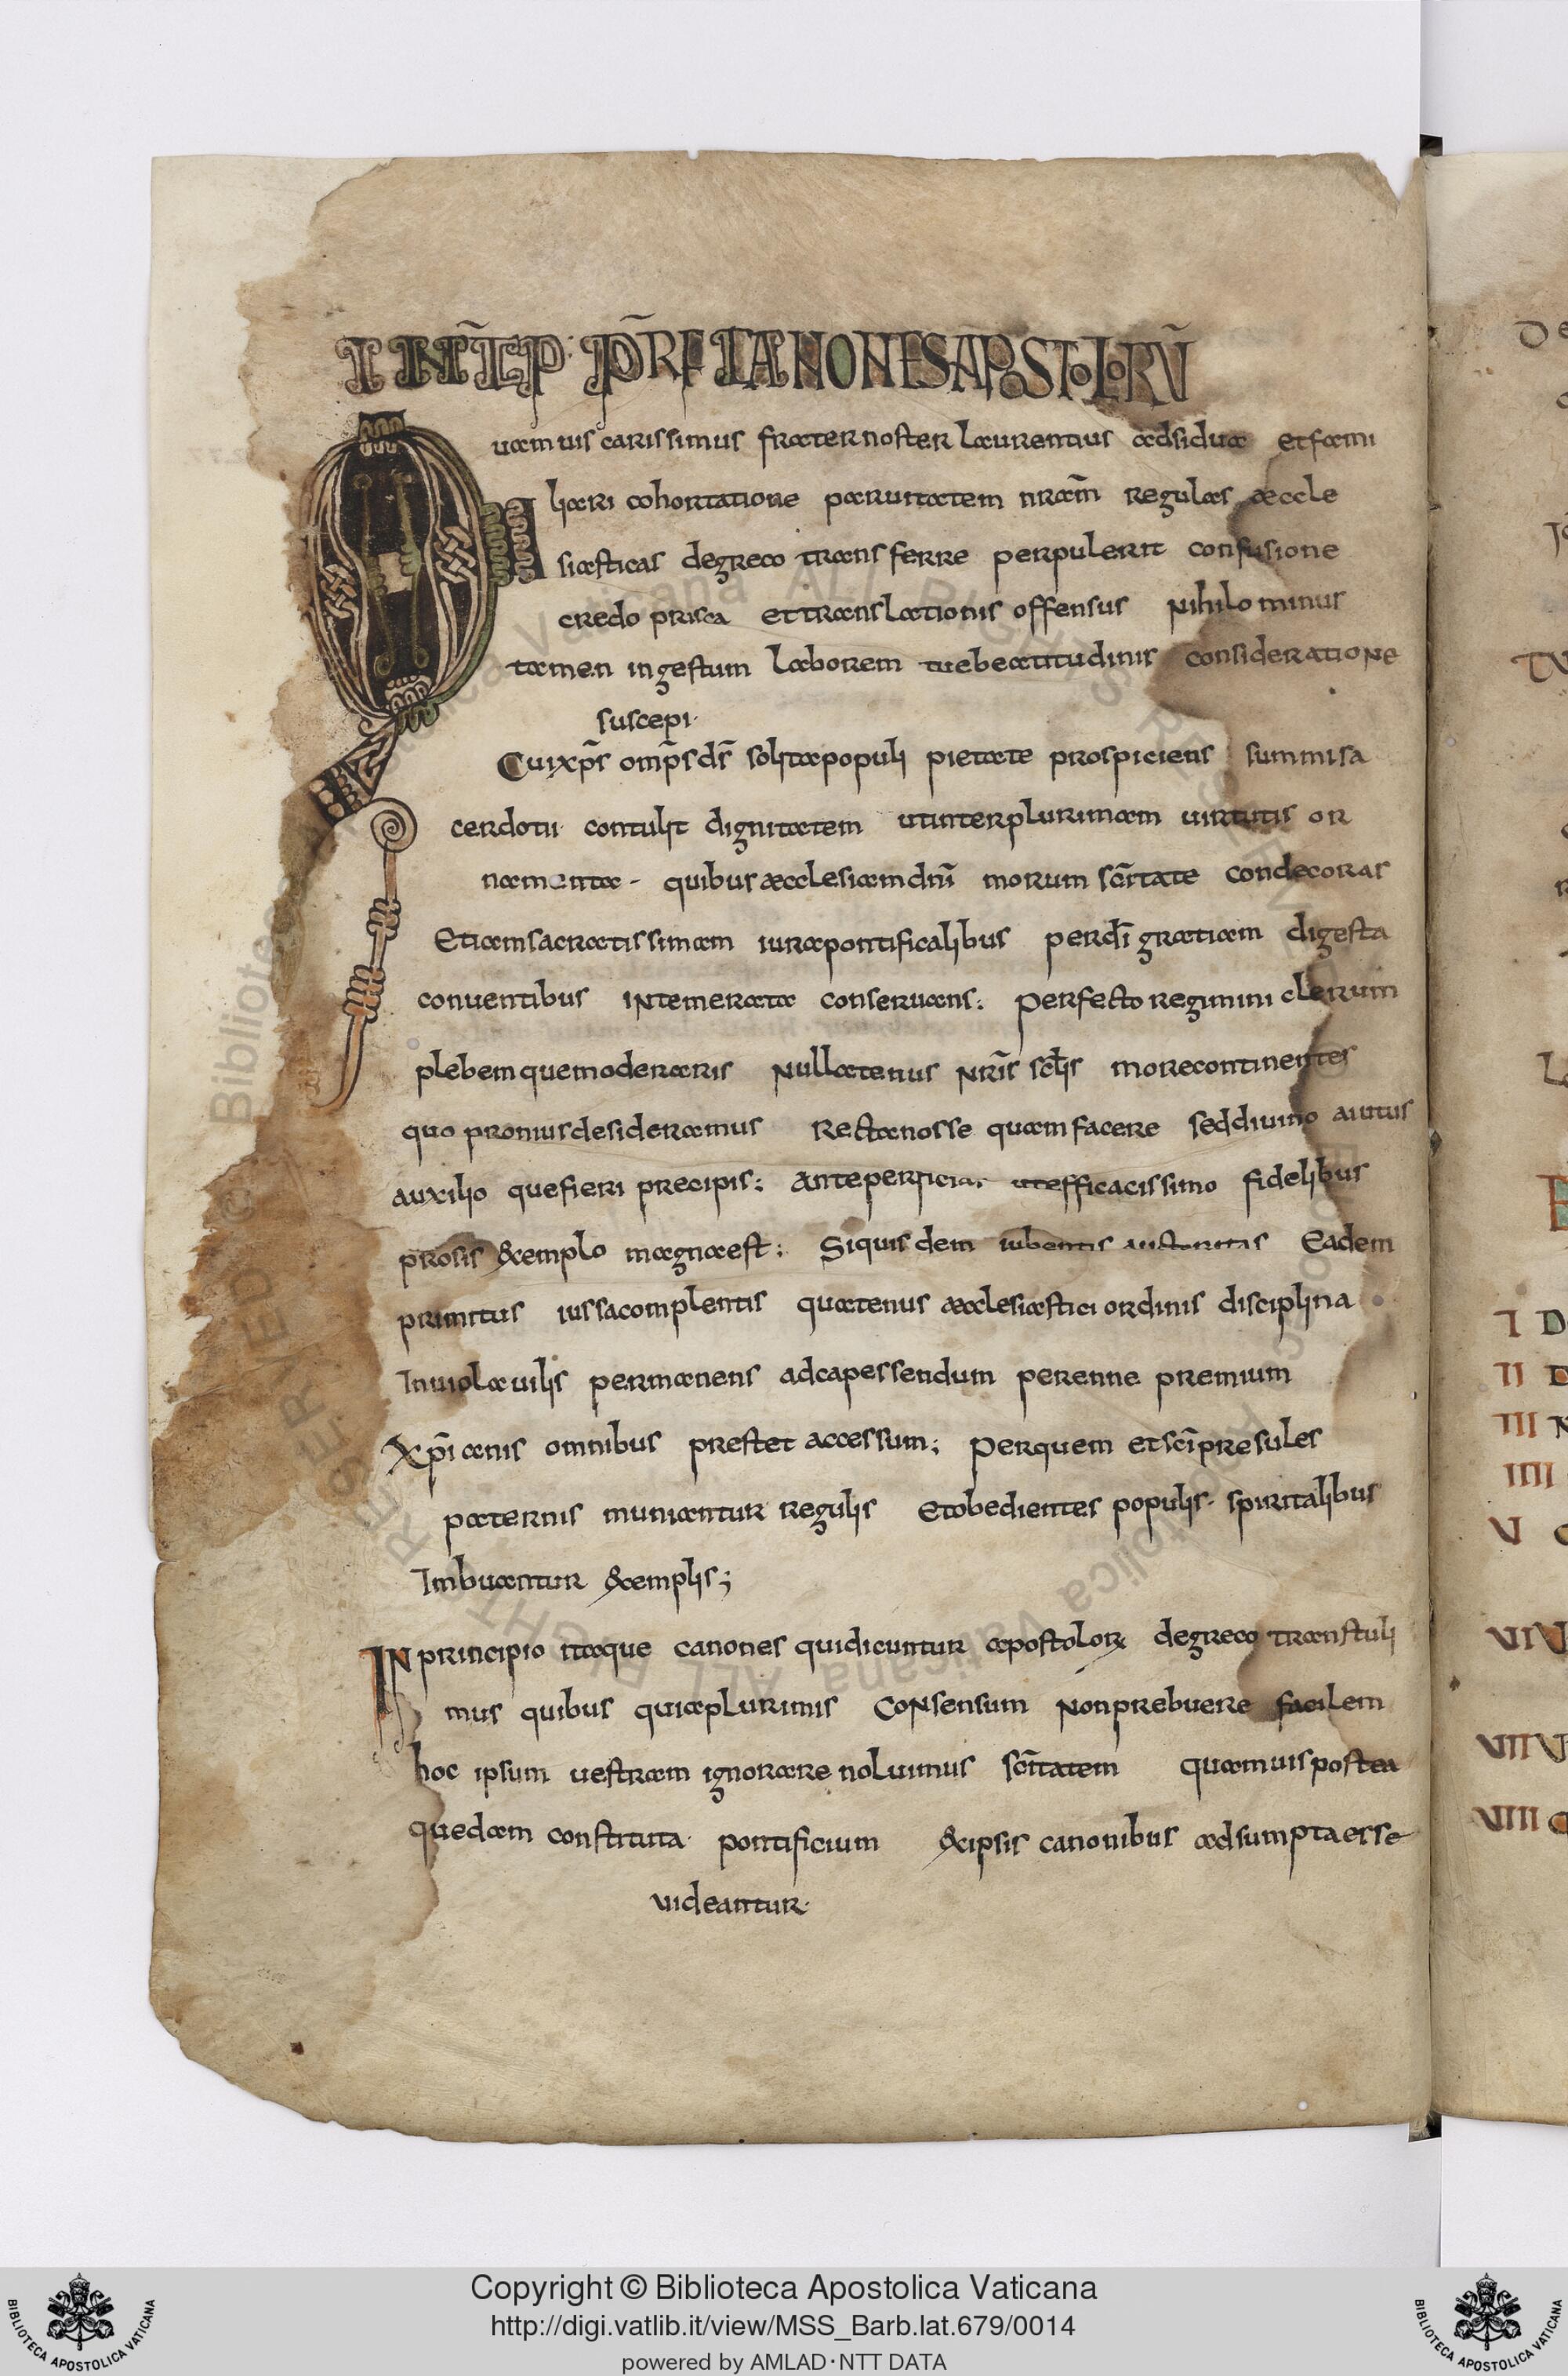 INCIP PRF CANONES APOSTOLORŪ
Quamuis carissimus frater noster laurentius adsidua et fami
liari cohortatione paruitatem nr̄am regulas aeccle
siasticas degreco transferre perpulerit confusione
credo prisca et translationis offensus nihilominus
tamen ingestum laborem tuebeatitudinis consideratione
suscepi·
Cui xp̄s omp̄s ds̄ solita populi pietate prospiciens summi sa
cerdotii contulit dignitatem ut inter plurimam uirtutis or
namenta · quibus aecclesiam dn̄i morum sc̄itate condecoras
Etiam sacratissimam iura pontificalibus per dī gratiam digesta
conuentibus intemerata conseruans: perfecto regimini clerum
plebemque moderaris nullatenus nr̄is sc̄lis more continentes
quo pronius desideramus recta nosse quam facere sed diuino aiutus
auxilio que fieri precipis: Ante perficias ut efficacissimo fidelibus
prosis &xemplo magna est: Siquisdem iubentis auctoritas Eadem
primitus iussa complentis quatenus aecclesiastici ordinis disciplina
Inuiolauilis permanens ad capessendum perenne premium
Xp̄ianis omnibus prestet accessum: per quem et sc̄i presules
paternis muniantur regulis et obedientes populis· spiritalibus
Imbuantur &xemplis;
IN principio itaque canones qui dicuntur apostolorꝝ degreco transtuli
mus quibus quia plurimis consensum non prebuere facilem
hoc ipsum uestram ignorare noluimus sc̄itatem quamuis postea
quedam constituta· pontificium &xipsis canonibus adsumpta esse
uideantur·
I D
II D
III N
IIII
V
VI V
VII V
VIIII
Copyright © Biblioteca Apostolica Vaticana
http://digi.vatlib.it/view/MSS_Barb.lat.679/0014
powered by AMLAD·NTT DATA
BIBLIOTECA APOSTOLICA VATICANA
BIBLIOTECA APOSTOLICA VATICANA